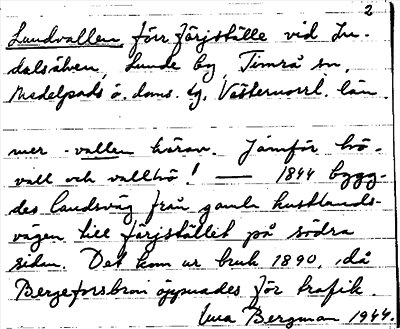 2
Lundvallen, förr färjställe vid In-
dalsälven, Lunde by, Timrå sn,
Medelpads ö. doms. tg. Västernorrl. län.
mer -vallen häran. Jämför
vall och ! — 1844 bygg-
des landsväg från gamla kustlands-
vägen till färjstället på södra
sidan. Det kom ur bruk 1890, då
Bergeforsbron öppnades för trafik.
Bergman 1944.